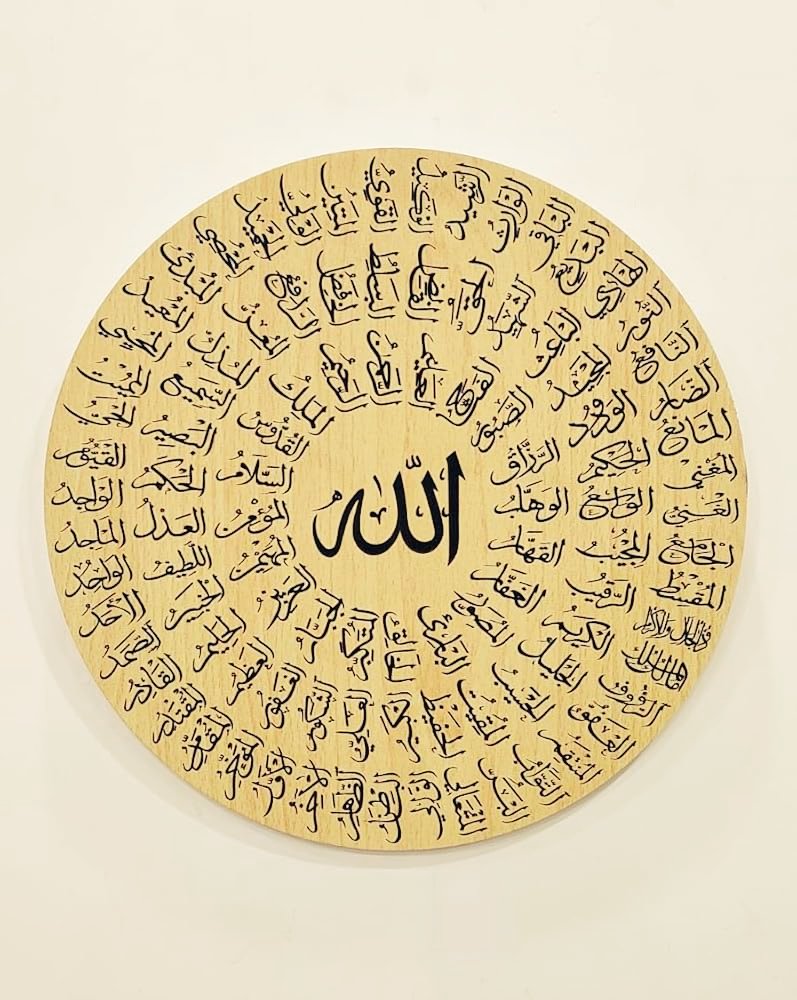 الله
الرحمن
الرحيم
الملك
القدوس
السلام
المؤمن
المهيمن
العزيز
الجبار
المتكبر
الخالق
البارئ
المصور
الغفار
القهار
الوهاب
الرزاق
الصبور
الفتاح
العليم
القابض
الباسط
الخافض
الرافع
المعز
المذل
السميع
البصير
الحكم
العدل
اللطيف
الخبير
الحليم
العظيم
الغفور
الشكور
العلي
الكبير
الحفيظ
المقيت
الحسيب
الجليل
الكريم
الرقيب
المجيب
الواسع
الحكيم
الودود
المجيد
الباعث
الشهيد
الحق
الوكيل
القوي
المتين
الولي
الحميد
المحصي
المبدئ
المعيد
المحيي
المميت
الحي
القيوم
الواجد
الماجد
الواحد
الأحد
الصمد
القادر
المقتدر
المقدم
المؤخر
الأول
الآخر
الظاهر
الباطن
الوالي
المتعالي
البر
التواب
المنتقم
العفو
الرؤوف
مالك الملك
ذو الجلال والإكرام
المقسط
الجامع
الغني
المغني
المانع
الضار
النافع
النور
الهادي
البديع
الباقي
الوارث
الرشيد